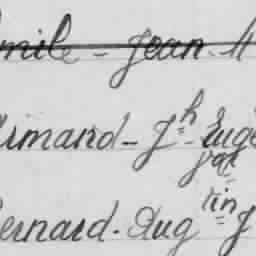 mile - Jean. M
rmand - Jh - Eugè
Bernard. Augtin J